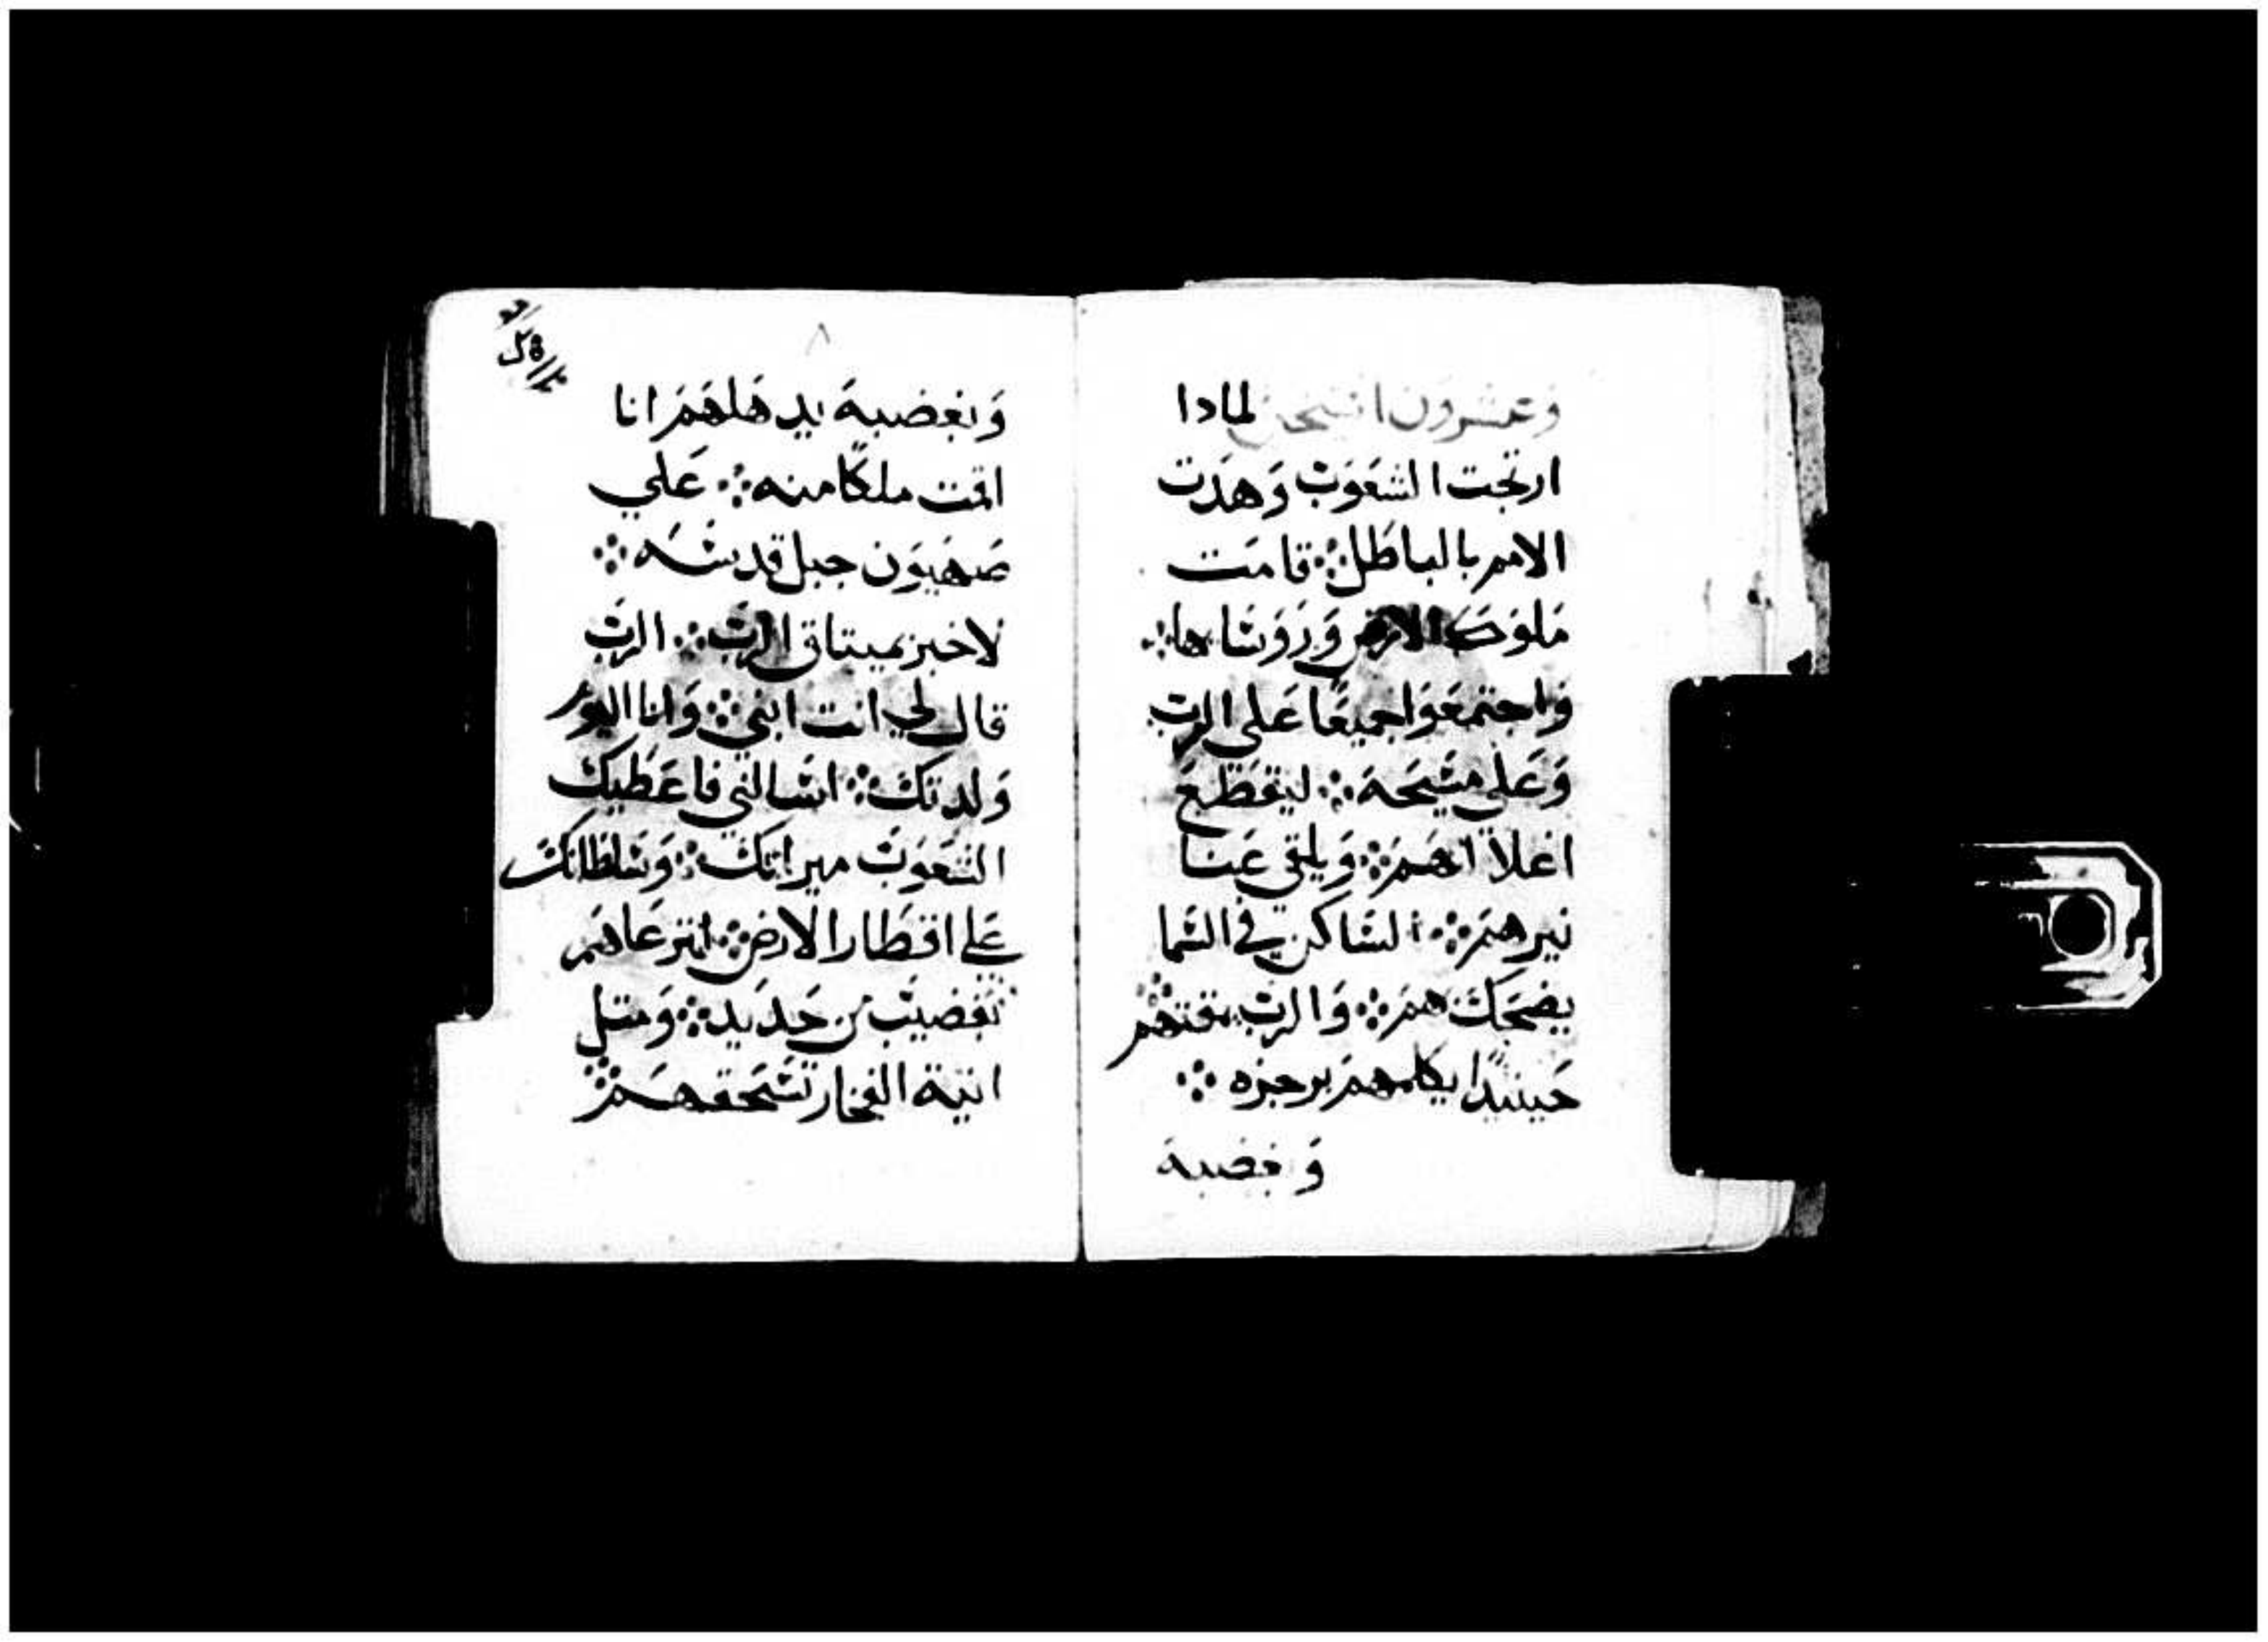 وعشرون استيخن لمادا
ارتجت الشعوب وهدت
الامم بالباطل ܀ قامت
ملوك الارض وروسايها ܀
واجتمعوا جميعًا على الرب
وعلى مسيحه ܀ ليقطع
اغلالهم ܀ ويلقى عنا
نيرهم ܀ الساكن في السما
يضحك هم ܀ والرب يمقتهم ܀
حينيدًا يكلمهم برجزه ܀
وبغضبه
٨
وبغضبه يدهلهم انا
اقمت ملكًا منه ܀ علي
صهيون جبل قدسه ܀
لاخبر بميتاق الرب ܀ الرب
قال لي انت ابني ܀ وانا اليوم
ولدتك ܀ اسالني فاعطيك
الشعوب ميراتك ܀ وسلطانك
على اقطار الارض ܀ لترعاهم
بقضيب من حديد ܀ ومتل
انية الفخار تسحقهم ܀